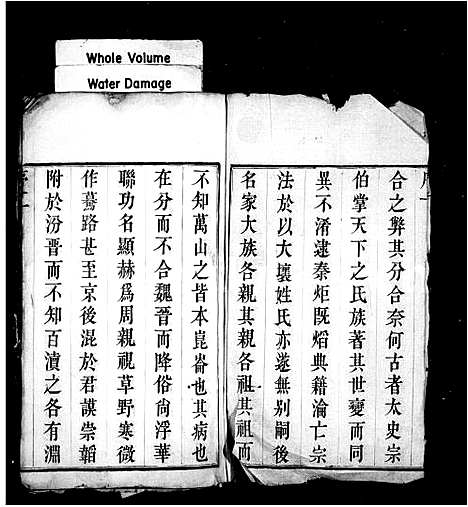 Whole Volume
Water Damage
合之弊其分合奈何古者太史宗
伯掌天下之氏族著其世變而同
異不淆逮秦炬既熖典籍淪亡宗
法於以大壞姓氏亦遂無别嗣後
名家大族各親其親各祖其祖而
不知萬山之皆本崑崙也其病也
在分而不合魏晉而降俗尚浮華
聯功名顯赫爲周親視草野寒微
作驀路甚至京後混於君謨崇韜
附於汾晉而不知百瀆之各有淵